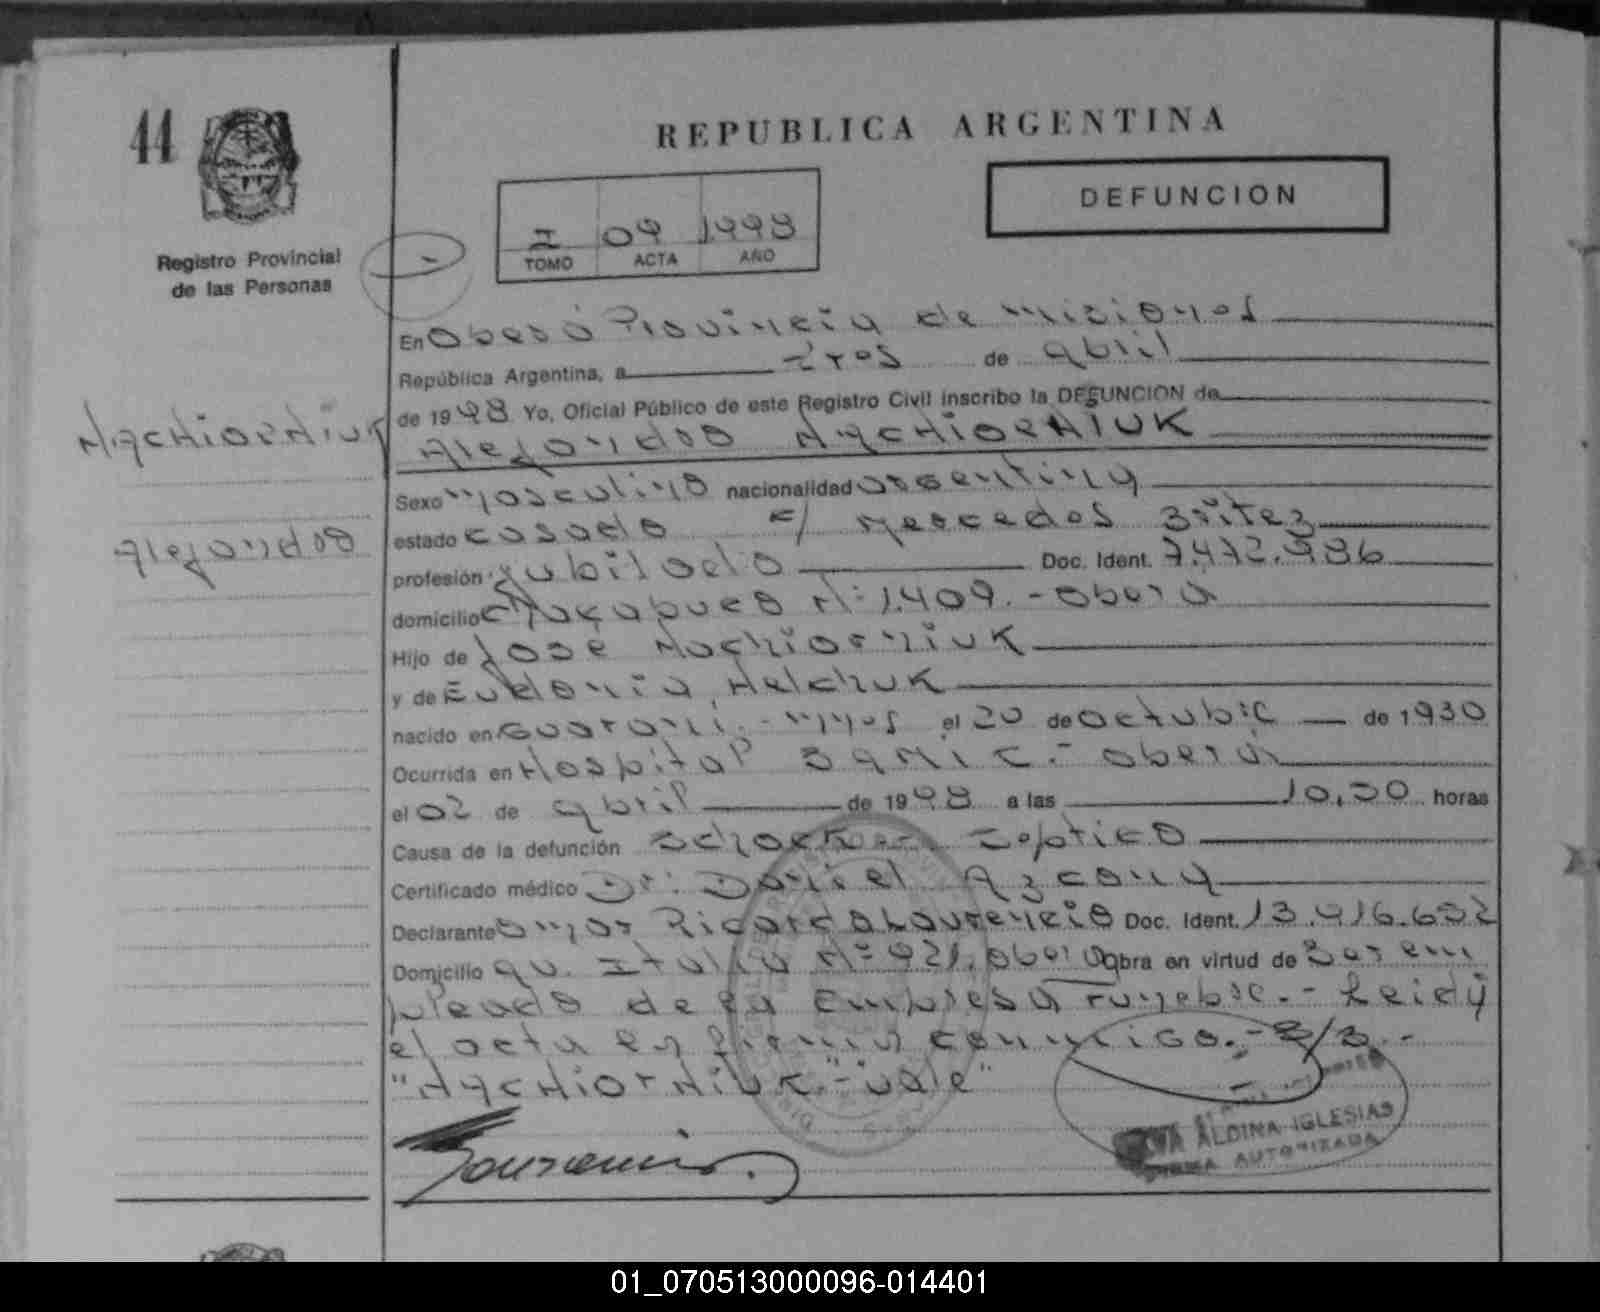 44
REPUBLICA ARGENTINA
DEFUNCION
I 09 1998
TOMO ACTA AÑO
Registro Provincial
de las Personas
En Oberá Provincia de Misiones
República Argentina, a tres de abril
de 1998 Yo, Oficial Público de este Registro Civil inscribo la DEFUNCION de
NACHIORNIUK
Alejandro NACHIORNIUK
Alejandro
Sexo masculino nacionalidad argentina
estado casado c/ Mercedes Britez
profesión jubilado Doc. Ident. 7.472.986
domicilio Chacabuco Nº 1.409.- Oberá
Hijo de José Nachiorniuk
y de Eudonia Melchuk
nacido en Guaraní.- Mnes el 20 de octubre de 1930
Ocurrida en Hospital SAMIC.- Oberá
el 02 de abril de 1998 a las 10,30 horas
Causa de la defunción Schock Septico
Certificado médico Dr. Daniel Azcona
Declarante Omar Ricardo Lourencio Doc. Ident. 13.916.632
Domicilio av. Italia Nº 921. Oberá obra en virtud de Ser em
pleado de la Empresa Funebre.- Leidy
el acta en firma conmigo.-
"NACHIORNIUK" - vale"
ALDINA IGLESIAS
FIRMA AUTORIZADA
01_070513000096-014401